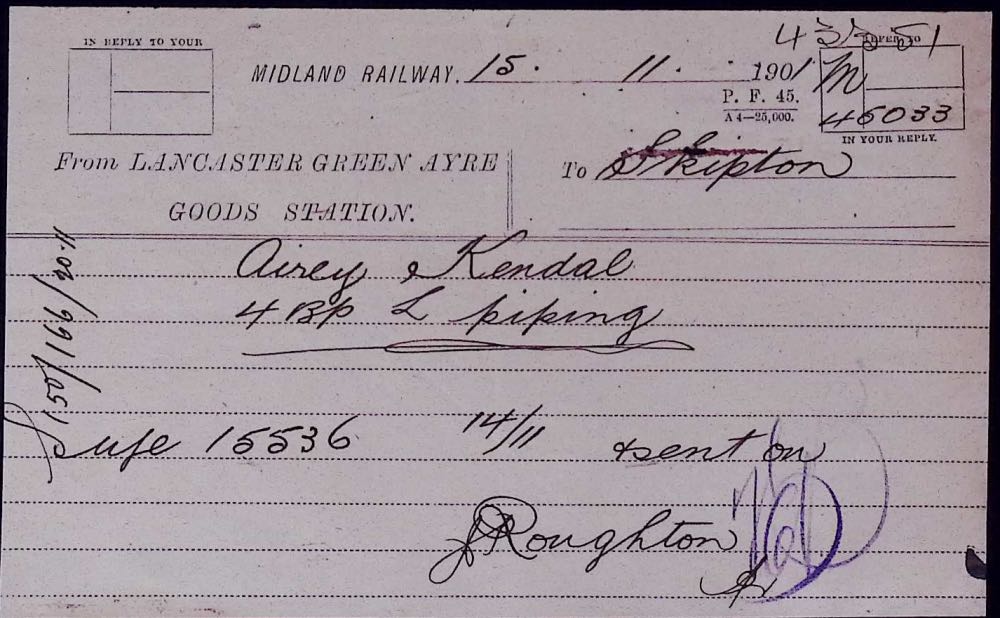 IN REPLY TO YOUR
43351
REFER TO
MIDLAND RAILWAY. 15. 11. 1901
M
P. F. 45.
A 4—25,000.
46033
IN YOUR REPLY.
From LANCASTER GREEN AYRE
GOODS STATION.
To Skipton
Airey & Kendal
4 Bp L piping
150/199/20/11
15536 14/11 sent on
J Roughton